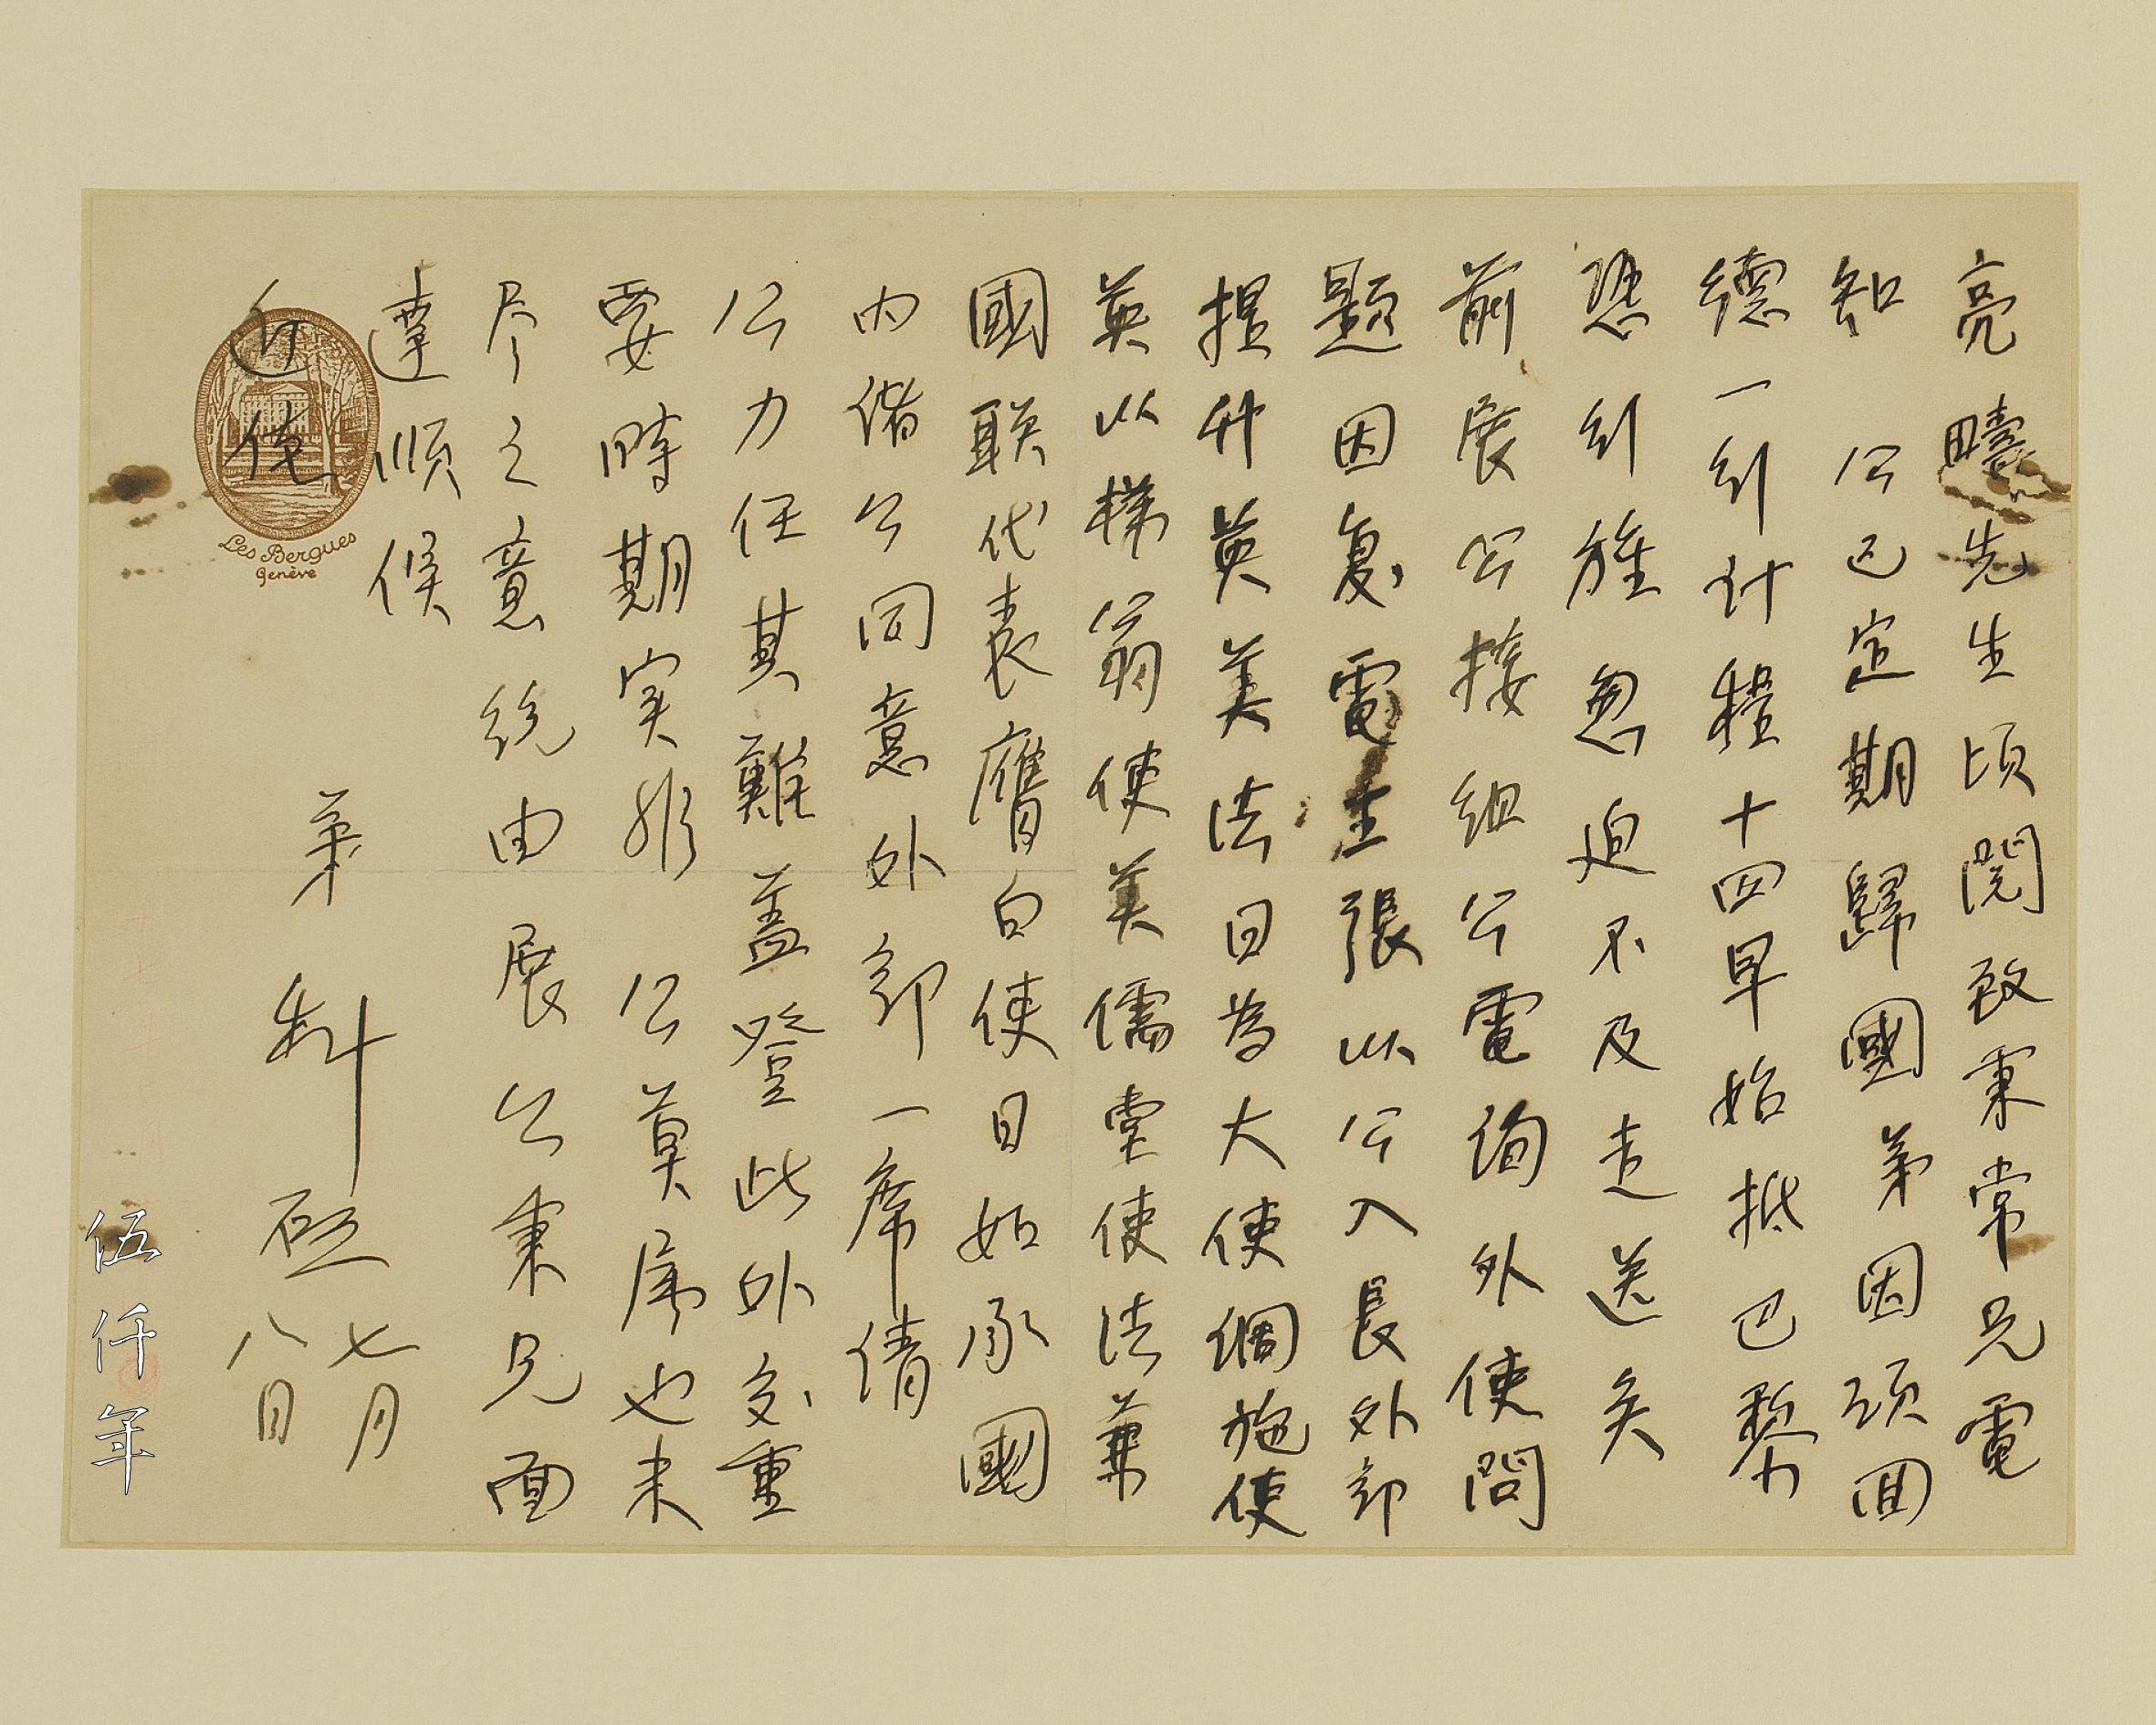 亮疇先生頃閱致秉常兄電
知 公已定期歸國弟因須回
德一行計程十四早始抵巴黎
恐行旌忽迫不及走送矣
前展公接組公電詢外使問
題因复電主張以公入長外部
提升英美法日為大使調施使
英以梯翁使美儒堂使法兼
國联代表膺白使日如承國
内諸公同意外部一席倩
公力任其難蓋登此外交重
要時期实非 公莫属也未
尽之意統由展公秉兄面
達順候
近佳
弟 科 啟 七月
八日
Les Bergues
Genève
伍仟年